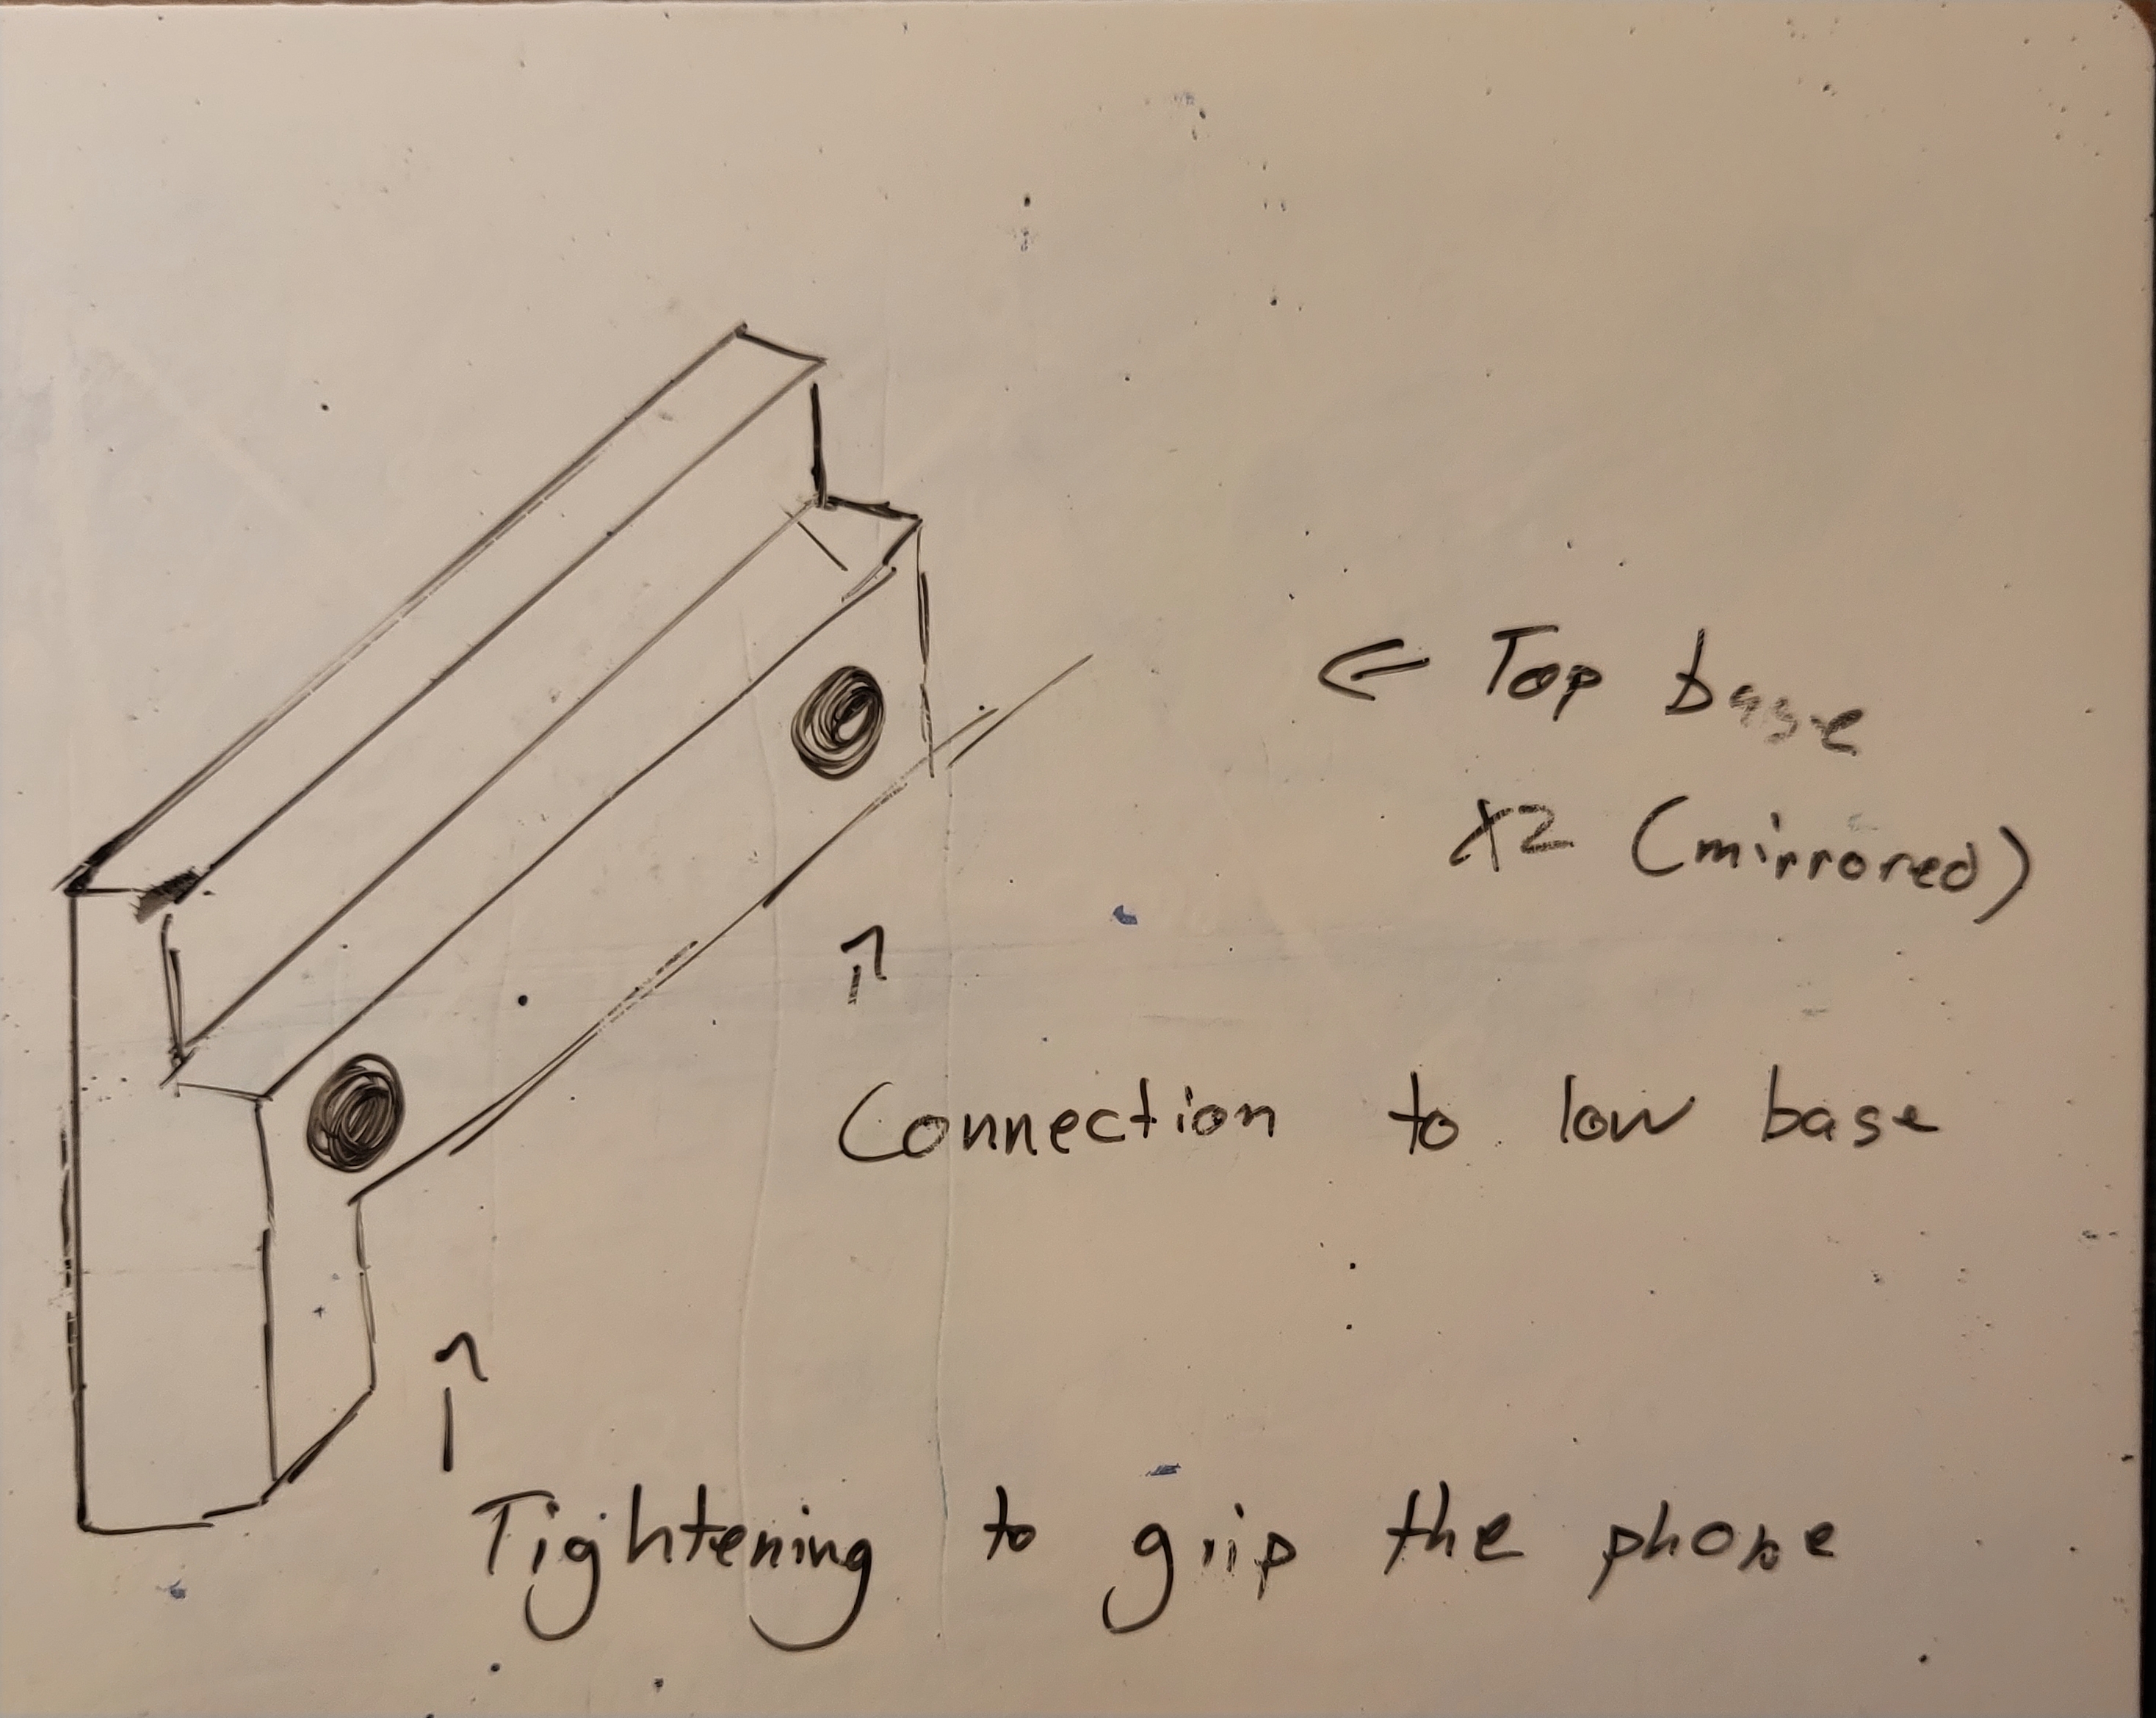 ⇐ Top base
X2 (mirrored)
Connection to low base
Tightening to grip the phone